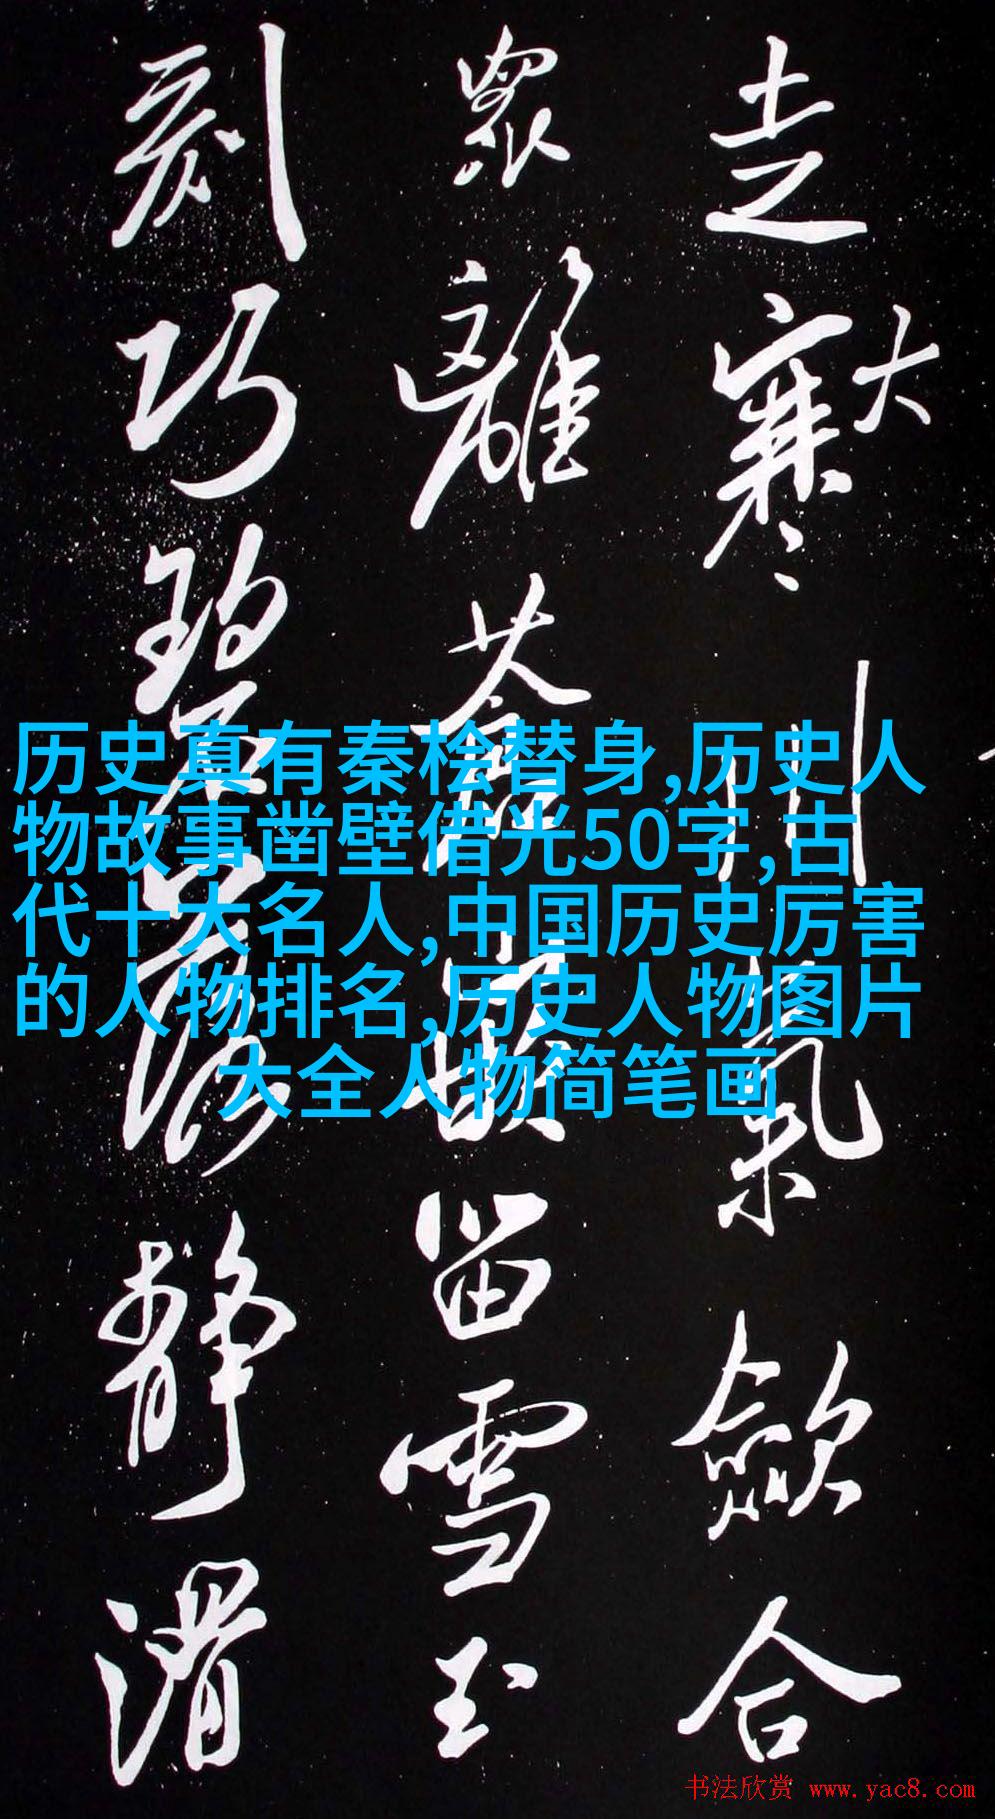 走寒大川氣歛合
衆離嵌留雪玉
刻巧碧落靜
历史真有秦桧替身,历史人
物故事凿壁借光50字,古
代十大名人,中国历史厉害
的人物排名,历史人物图片
大全人物简笔画
书法欣赏 www.yac8.com